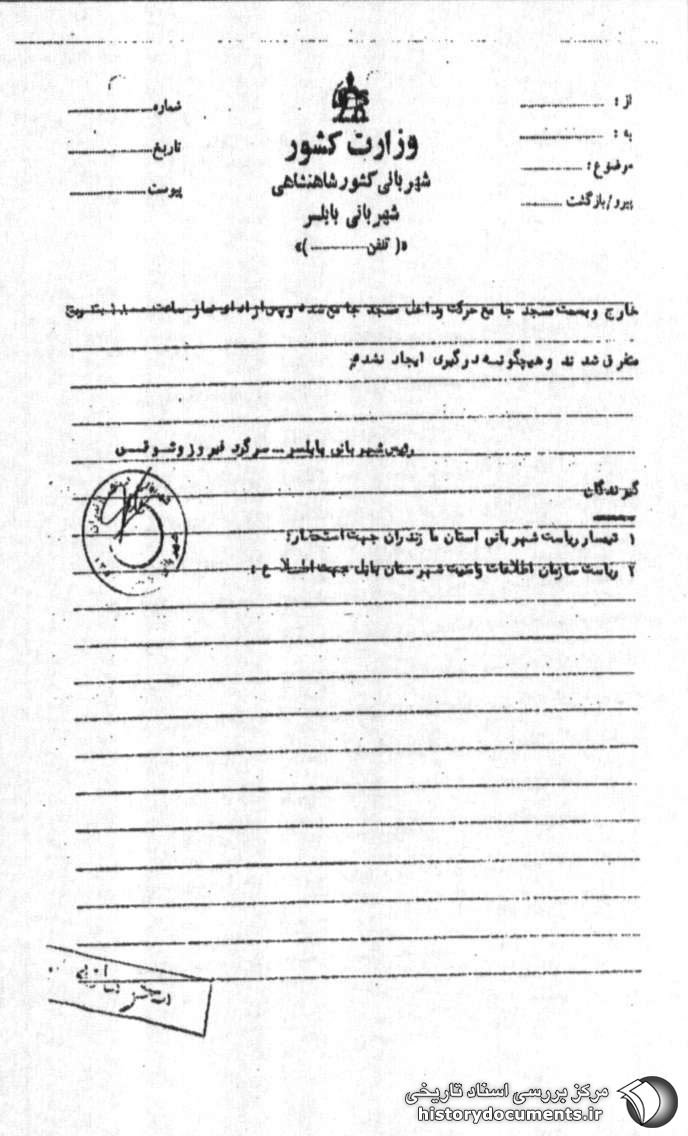 از :
به :
موضوع :
پیرو/بازگشت
وزارت کشور
شهربانی کشور شاهنشاهی
شهربانی بابلسر
«( تلفن )»
شماره
تاریخ
پیوست
خارج و بسمت مسجد جامع حرکت و داخل مسجد جامع شده و پس از ادای نماز ساعت بتدریج
متفرق شدند و هیچگونه درگیری ایجاد نشده
رئیس شهربانی بابلسر ـ سرگرد فیروز
گیرندگان
۱ تیمسار ریاست شهربانی استان مازندران جهت استحضار؛
۲ ریاست سازمان اطلاعات و امنیت شهرستان بابل جهت اطلاع :
مرکز بررسی اسناد تاریخی
historydocuments.ir